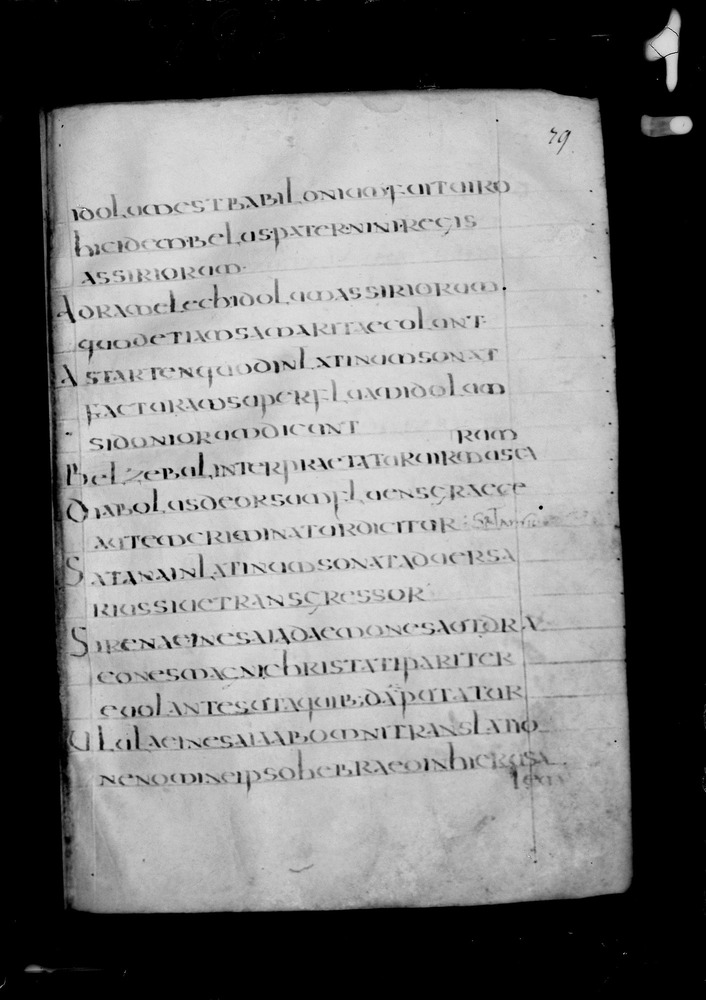 79
idolumestbabiloniumfuituiro
hicidembelus·paterninireGis
assiriorum·
Adramelechidolumassiriorum·
quodetiamsamaritaecolunt·
Astartenquodinlatinumsonat
facturamsuperfluamidolum
sidoniorumdicunt
rum
Belzebulinterpraetaturuirmusca
Diabolusdeorsumfluensgraece
autemcriminaturdicitur
Satanainlatinumsonataduersa
riussiuetransgressor
Sirenaeinesaiadaemonesautdra
conesmagnichristatipariter
euolantesutaquib;dāputatur
Ululaeinesaiaabomnitranslatio
nenomineipsohebraeoinhierusa
lem